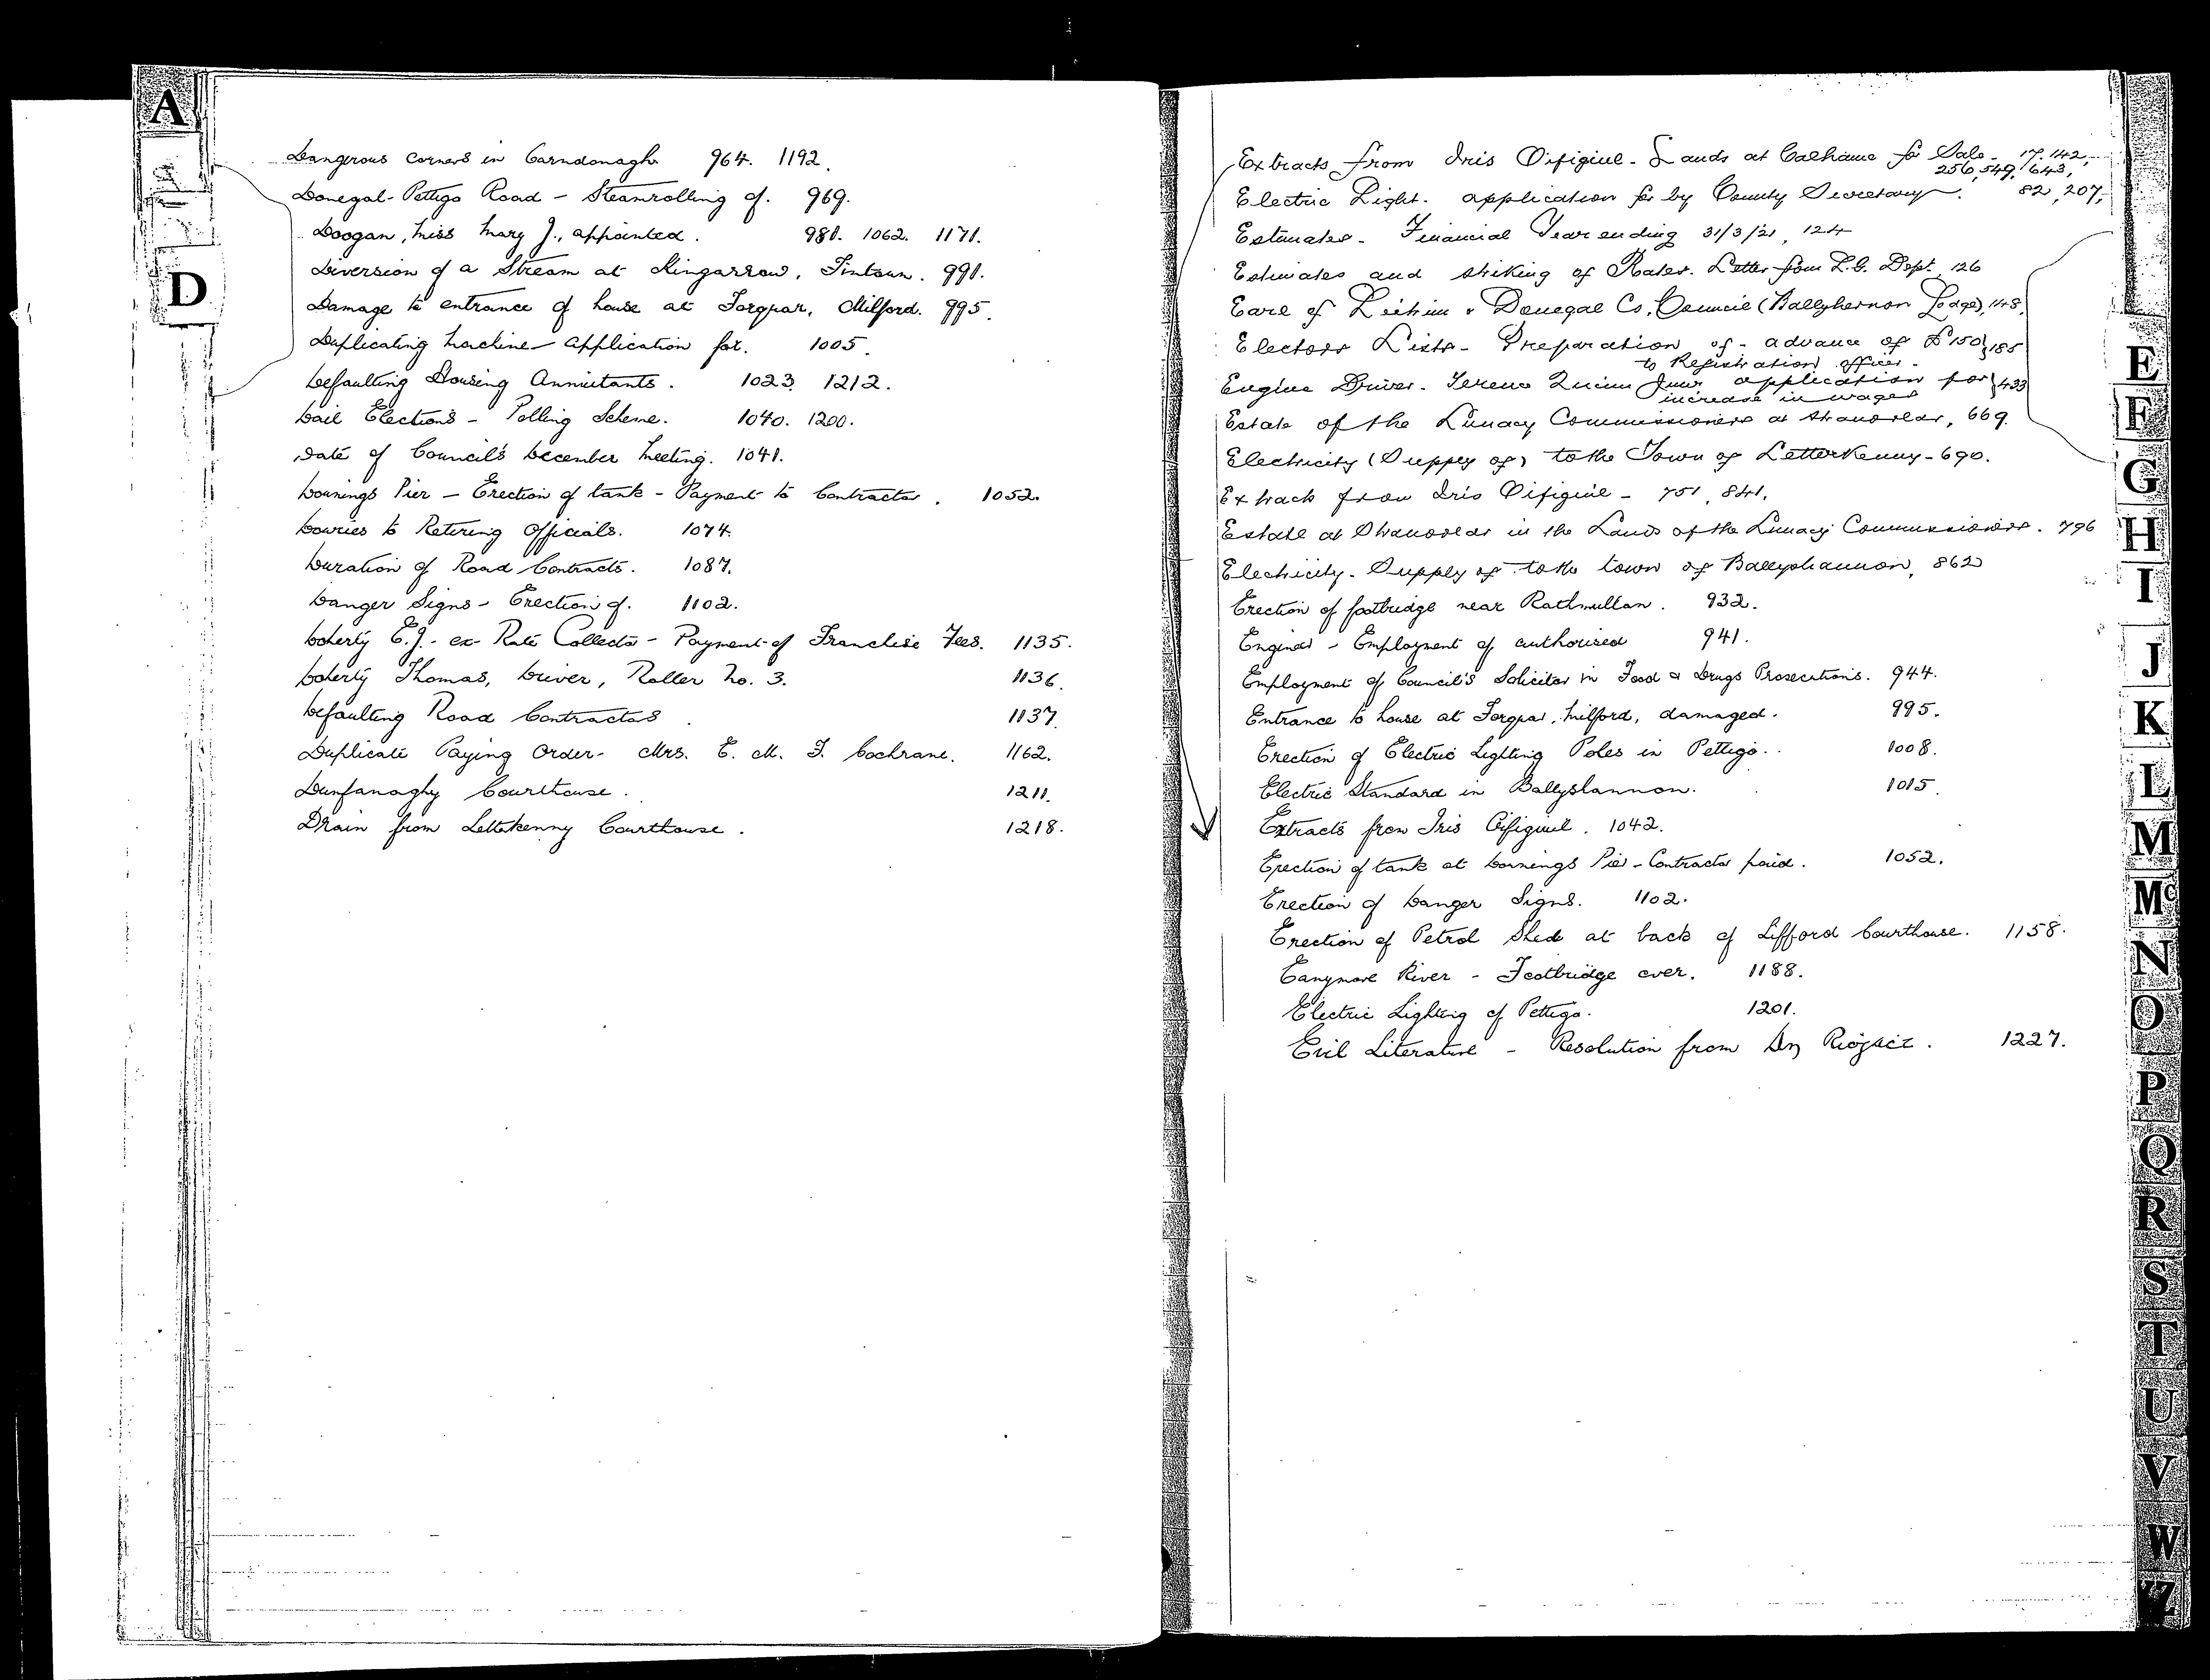 A
D
Dangerous corners in Carndonagh 964. 1192.
Donegal-Pettigo Road - Steamrolling of. 969.
Doogan, Miss Mary J., appointed. 981. 1062. 1171.
Diversion of a Stream at Kingarrow, Fintown. 991.
Damage to entrance of house at Forgpar, Milford. 995.
Duplicating Machine - Application for. 1005.
Defaulting Housing Annuitants. 1023. 1212.
Dail Elections - Polling Scheme. 1040. 1200.
Date of Council's December Meeting. 1041.
Downings Pier - Erection of tank - Payment to Contractor. 1052.
Dowries to Retiring Officials. 1074.
Duration of Road Contracts. 1087.
Danger Signs - Erection of. 1102.
Doherty E.J. - ex Rate Collector - Payment of Franchise Fees. 1135.
Doherty Thomas, Driver, Roller No. 3. 1136.
Defaulting Road Contractors. 1137.
Duplicate Paying Order - Mrs. E. M. J. Cochrane. 1162.
Dunfanaghy Courthouse. 1211.
Drain from Letterkenny Courthouse. 1218.
Extracts from Iris Oifigiul - Lands at Calhame for Sale - 17. 142,
256, 549, 643,
Electric Light. application for by County Secretary. 82, 207,
Estimates - Financial Year ending 31/3/21, 124
Estimates and striking of Rates. Letter from L.G. Dept. 126
Earl of Leitrim v Donegal Co. Council (Ballyhernon Lodge), 148,
Electors Lists - Preparation of - advance of £150 185
to Registration officer -
Engine Driver. Terence Quinn Junr. application for 433
increase in wages
Estate of the Lunacy Commissioners at Drumoghill, 669.
Electricity (Supply of) to the Town of Letterkenny - 690.
Extract from Iris Oifigiul - 751, 841.
Estate at in the Lands of the Lunacy Commissioners. 796
Electricity - Supply of to the town of Ballyshannon, 862
Erection of footbridge near Rathmullan. 932.
Engineer - Employment of authorised 941.
Employment of Council's Solicitor in Food & Drugs Prosecutions. 944.
Entrance to house at Forgpar, Milford, damaged. 995.
Erection of Electric Lighting Poles in Pettigo. 1008.
Electric Standard in Ballyshannon. 1015.
Extracts from Iris Oifigiuil. 1042.
Erection of tank at Downings Pier - Contractor paid. 1052.
Erection of Danger Signs. 1102.
Erection of Petrol Shed at back of Lifford Courthouse. 1158.
Eanymore River - Footbridge over. 1188.
Electric Lighting of Pettigo. 1201.
Evil Literature - Resolution from An Rioġact. 1227.
E
F
G
H
I
J
K
L
M
Mc
N
O
P
Q
R
S
T
U
V
W
YZ